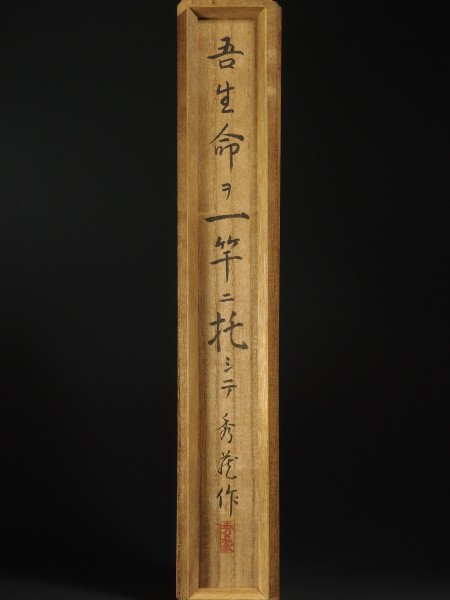 吾生命ヲ一竿ニ托シテ 秀茂作